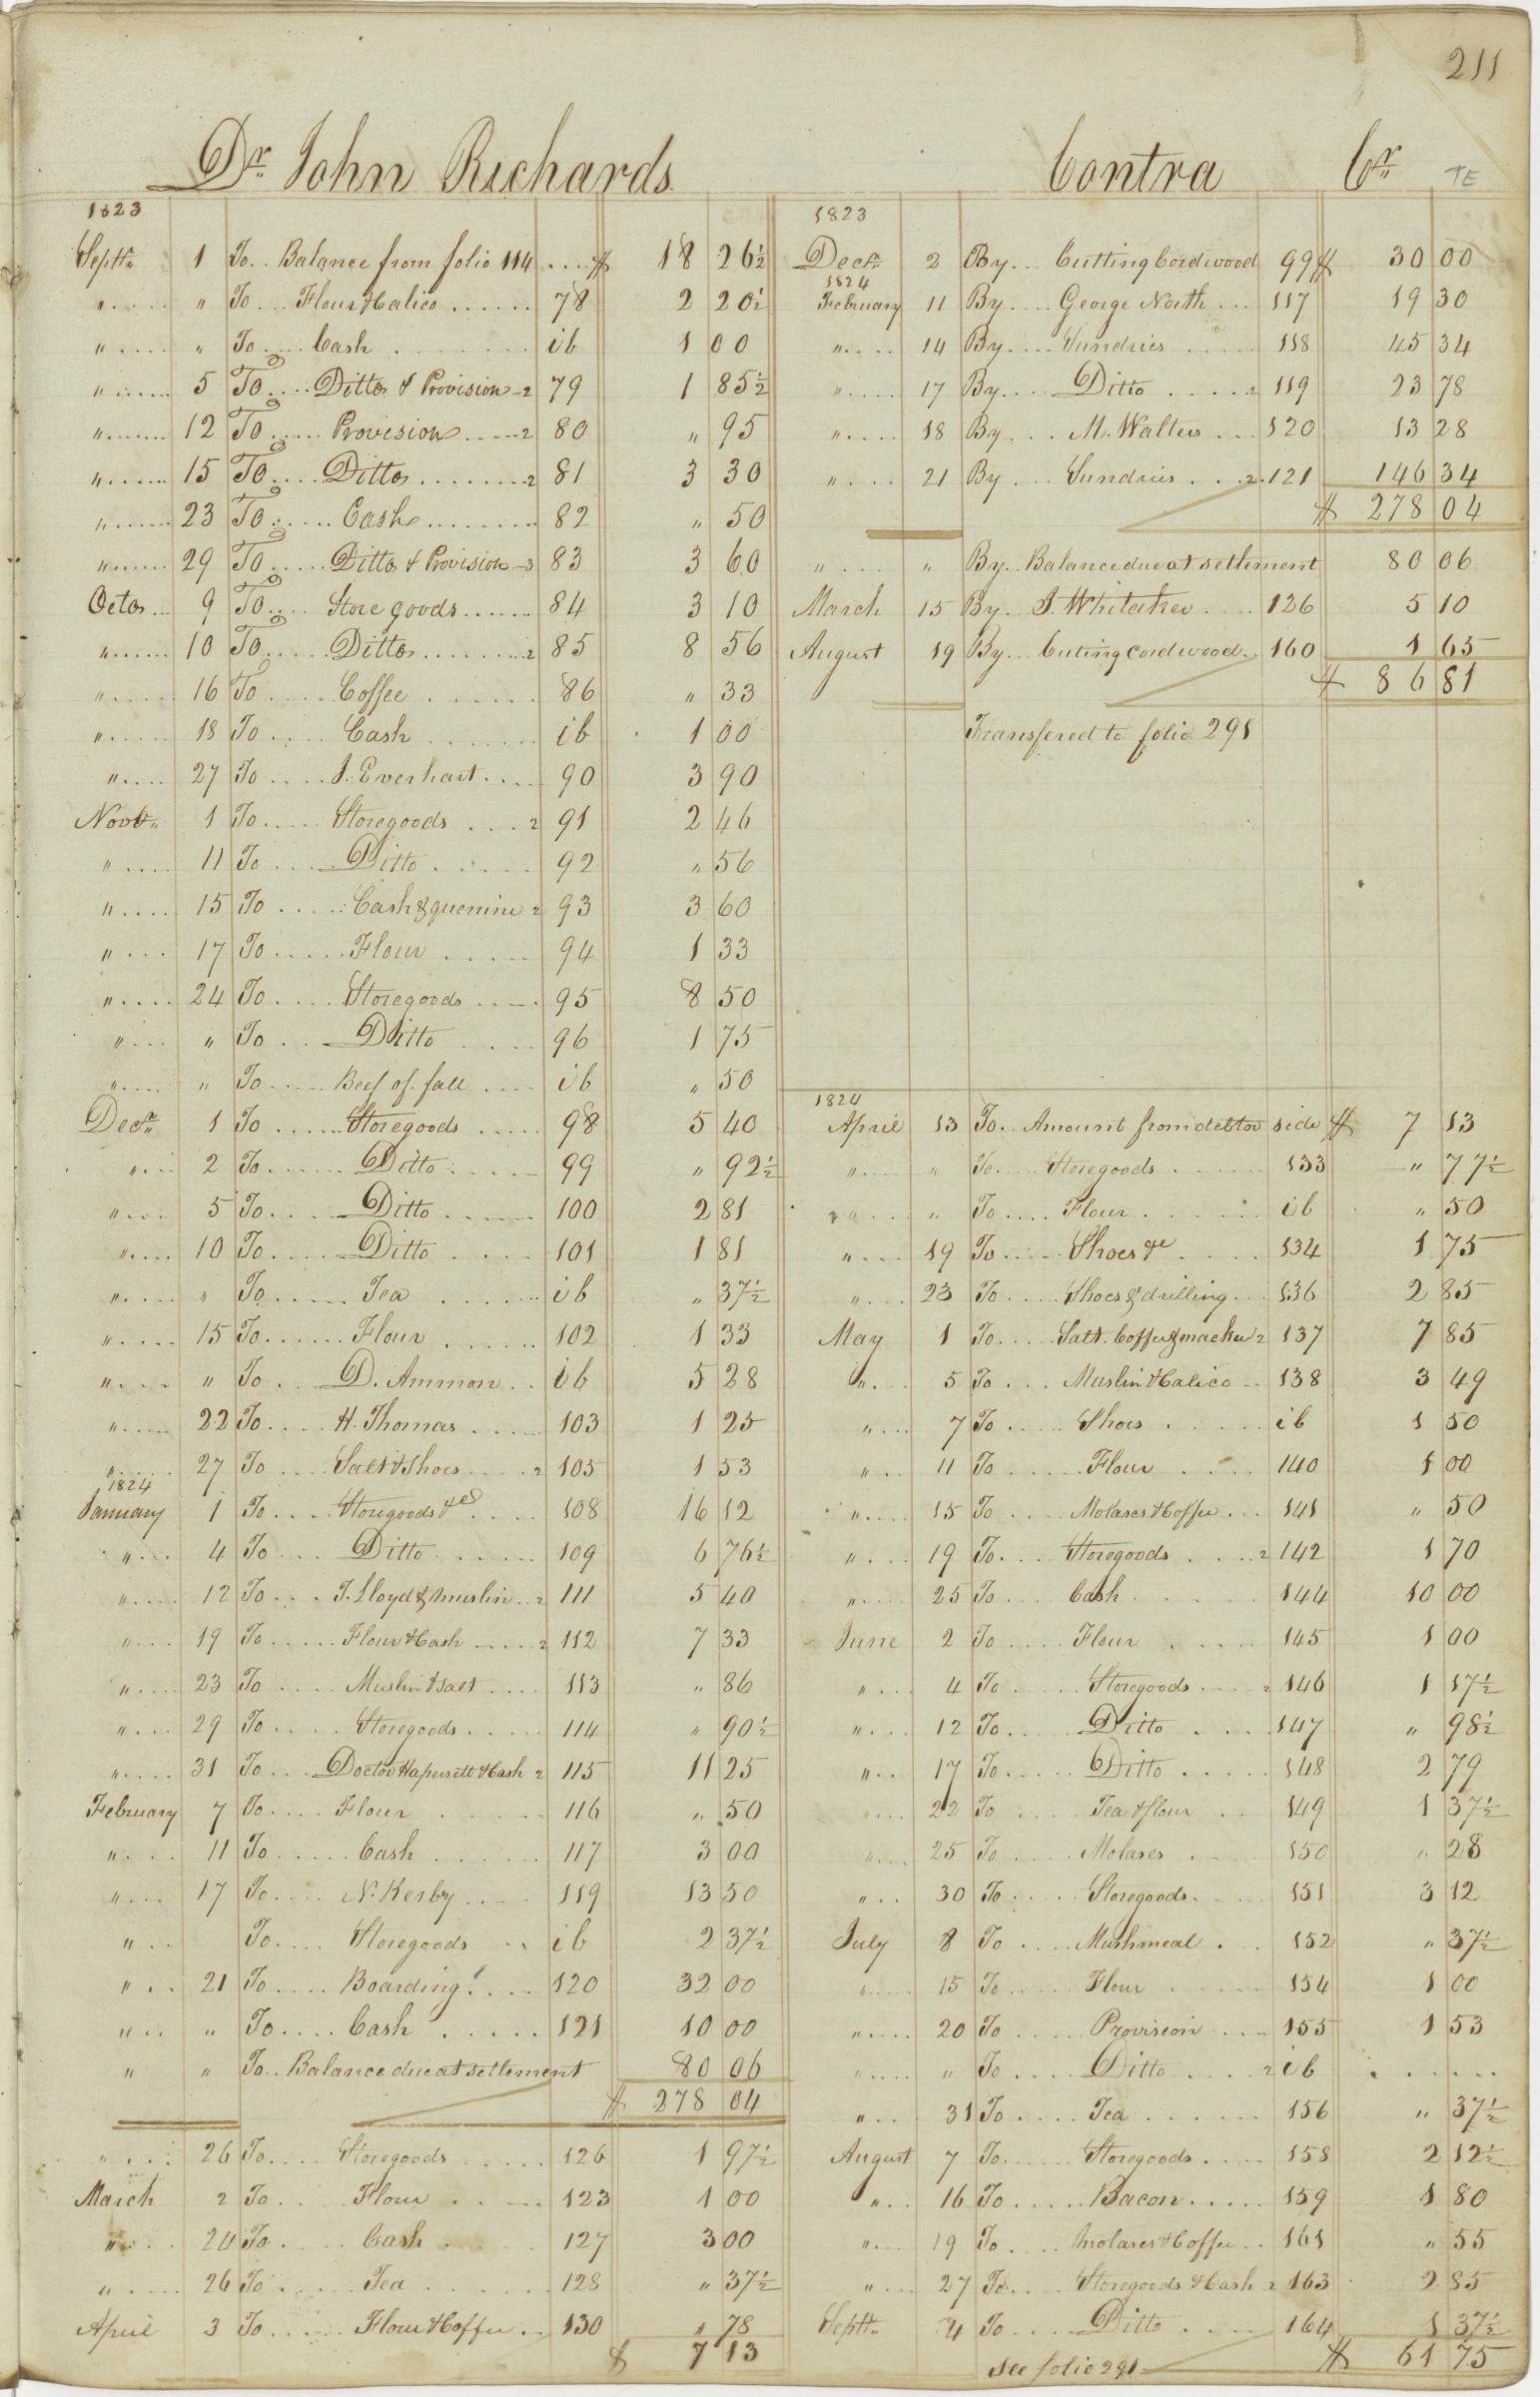 211
Dr. John Richards
1823
Septr. 1 To.. Balance from folio 114 .... $ 18 26½
" " To... Flour & Calico ...... 78 2 20½
" " To.... Cash ........ ib 1 00
" 5 To.... Ditto & Provision 2 79 1 85½
" 12 To..... Provision ..... 2 80 " 95
" 15 To.... Ditto ........ 2 81 3 30
" 23 To...... Cash ........ 82 " 50
" 29 To..... Ditto & Provision 3 83 3 60
Octo 9 To.... Store goods ...... 84 3 10
" 10 To..... Ditto ........ 2 85 8 56
" 16 To..... Coffee ...... 86 " 33
" 18 To..... Cash ....... ib 1 00
" 27 To..... J. Everhart .... 90 3 90
Novbr. 1 To..... Storegoods ... 2 91 2 46
" 11 To.... Ditto ..... 92 " 56
" 15 To..... Cash & quenine 2 93 3 60
" 17 To..... Flour ..... 94 1 33
" 24 To.... Storegoods .... 95 8 50
" " To... Ditto .... 96 1 75
" " To..... Beef of. fall .... ib " 50
Decr. 1 To...... Storegoods ..... 98 5 40
" 2 To...... Ditto ..... 99 " 92½
" 5 To.... Ditto ..... 100 2 81
" 10 To..... Ditto .... 101 1 81
" " To..... Tea ...... ib " 37½
" 15 To...... Flour ...... 102 1 33
" " To... D. Ammon .. ib 5 28
" 22 To.... H. Thomas ..... 103 1 25
" 27 To.... Salt & Shoes .... 2 105 1 53
1824
January 1 To.... Storegoods &c .... 108 16 12
" 4 To.... Ditto ...... 109 6 76½
" 12 To... T. Lloyd & muslin .. 2 111 5 40
" 19 To..... Flour & Cash ..... 2 112 7 33
" 23 To..... Muslin & salt .... 113 " 86
" 29 To..... Storegoods ..... 114 " 90½
" 31 To... Doctor & Cash 2 115 11 25
February 7 To.... Flour ...... 116 " 50
" 11 To..... Cash ...... 117 3 00
" 17 To.... N. Kerby .... 119 13 50
" To.... Storegoods .. ib 2 37½
" 21 To.... Boarding .... 120 32 00
" " To.... Cash ..... 121 10 00
" " To.. Balance due at settlement 80 06
$ 278 04
" 26 To.... Storegoods ..... 126 1 97½
March 2 To... Flour .... 123 1 00
" 24 To..... Cash ... 127 3 00
" 26 To..... Tea ...... 128 " 37½
April 3 To..... Flour & Coffee .. 130 " 78
$ 7 13
Contra Cr. TE
1823
Decr. 2 By... Cutting Cordwood 99 $ 30 00
1824
February 11 By.... George North ... 117 19 30
" 14 By.... Sundries ..... 118 45 34
" 17 By.... Ditto ..... 2 119 23 78
" 18 By.... M. Walters ... 120 13 28
" 21 By.... Sundries .... 2 121 146 34
$ 278 04
" " By.. Balance due at settlement 80 06
March 15 By.. J. Whitaker .... 126 5 10
August 19 By... Cuting Cordwood. 160 1 65
$ 86 81
Transfered to folio 291
1824
April 13 To.. Amount from debtor side $ 7 13
" " To.... Storegoods ...... 133 " 77½
" " To.... Flour ...... ib " 50
" 19 To..... Shoes &c .... 134 1 75
" 23 To.... Shoes & drilling ... 136 2 85
May 1 To..... Salt. Coffee & 2 137 7 85
" 5 To.... Muslin & Calico .. 138 3 49
" 7 To.... Shoes ..... ib 1 50
" 11 To..... Flour .... 140 1 00
" 15 To.... Molases & Coffee ... 141 " 50
" 19 To.... Storegoods .... 2 142 1 70
" 25 To.... Cash ...... 144 10 00
June 2 To.... Flour .... 145 1 00
" 4 To.... Storegoods .... 2 146 1 17½
" 12 To..... Ditto .... 147 " 98½
" 17 To..... Ditto ..... 148 2 79
" 22 To..... Tea & flour .. 149 1 37½
" 25 To..... Molases .... 150 " 28
" 30 To..... Storegoods .... 151 3 12
July 8 To..... Mushmeal ... 152 " 37½
" 15 To...... Flour ..... 154 1 00
" 20 To..... Provision ... 155 1 53
" " To..... Ditto .... 2 ib ......
" 31 To..... Tea ...... 156 " 37½
August 7 To...... Storegoods .... 158 2 12½
" 16 To..... Bacon ..... 159 1 80
" 19 To.... Molases & Coffee .. 161 " 55
" 27 To.... Storegoods & Cash 2 163 2 85
Septr. 4 To..... Ditto .... 164 1 37½
See folio 291 $ 61 75